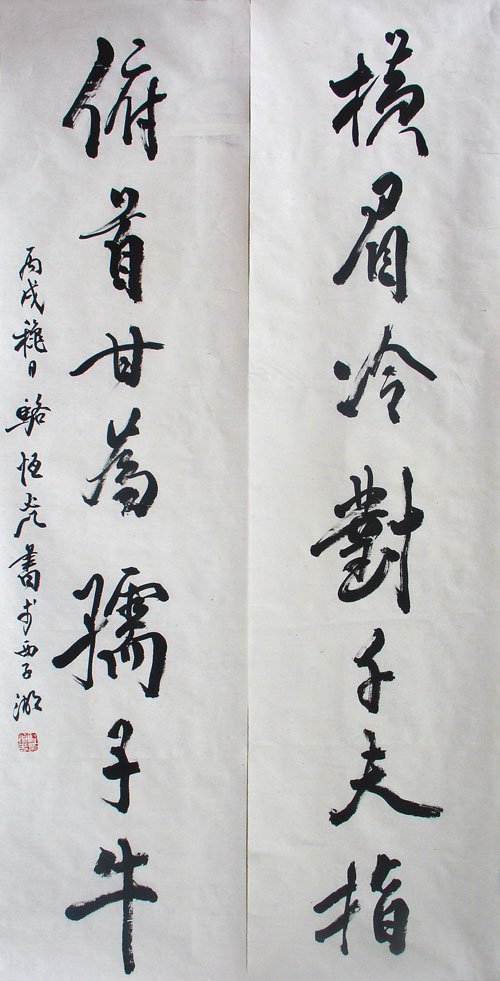 橫眉冷對千夫指
俯首甘為孺子牛
丙戌穐日駱恒光書於西子湖